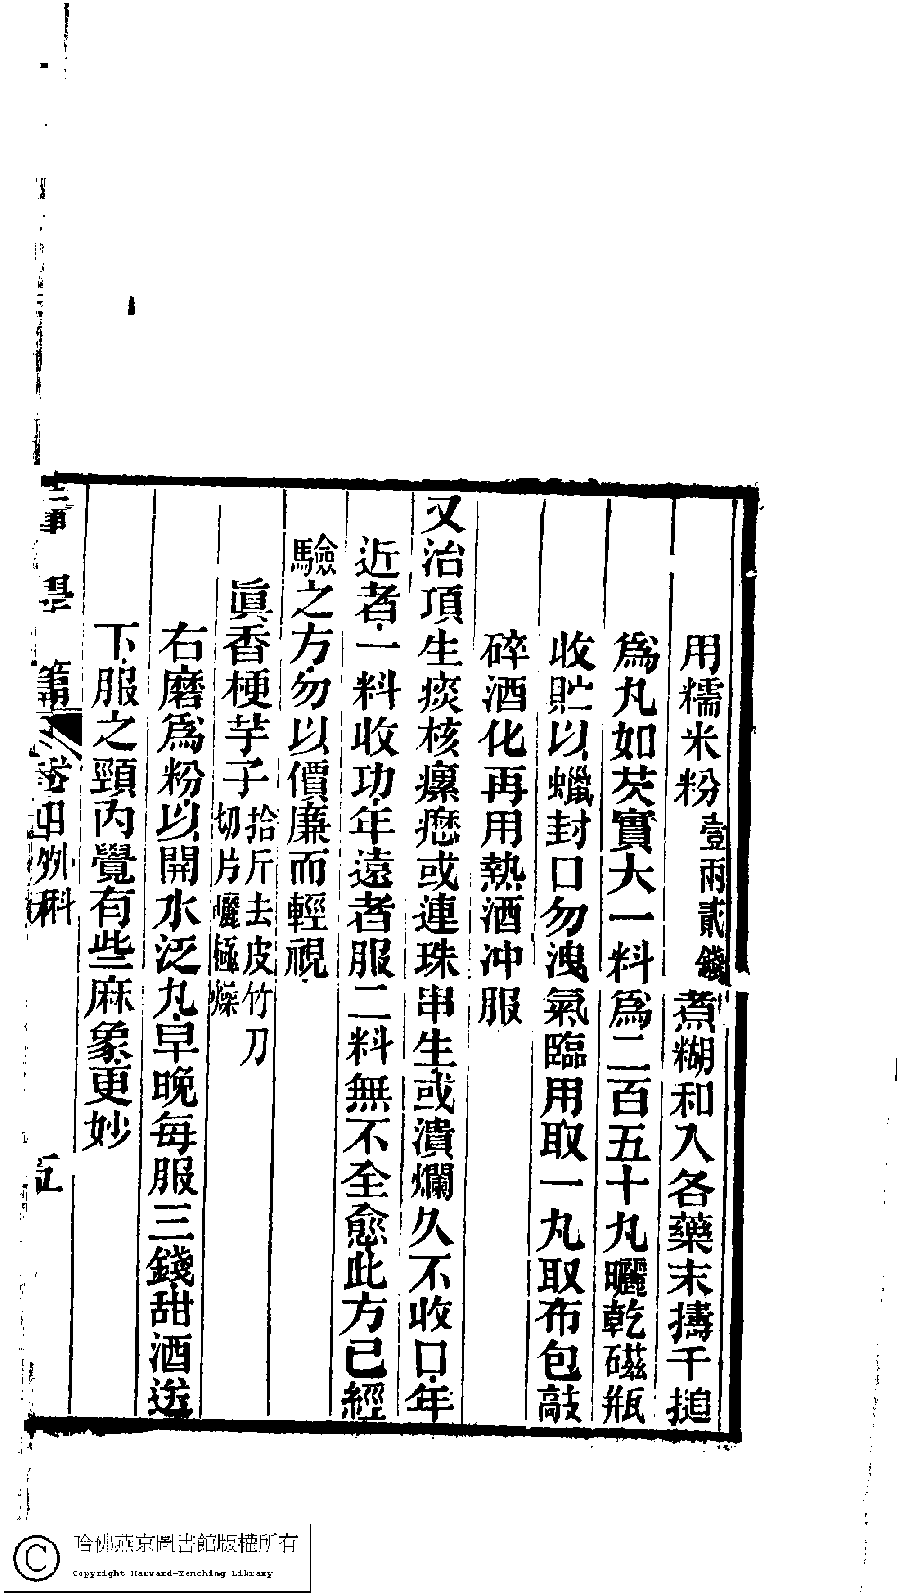 用糯米粉壹兩貳錢煮糊和入各藥末擣千搥
爲丸如芡實大一料爲二百五十丸曬乾磁瓶
收貯以蠟封口勿洩氣臨用取一丸取布包敲
碎酒化再用熱酒冲服
又治項生痰核瘰癧或連珠串生或潰爛久不收口年
近者一料收功年遠者服二料無不全愈此方已經
驗之方勿以價廉而輕視
眞香梗芋子拾斤去皮竹刀切片曬極燥
右磨爲粉以開水泛丸早晚每服三錢甜酒送
下服之頸內覺有些麻象更妙
外科
五
哈佛燕京圖書館版權所有
Copyright Harvard-Yenching Library